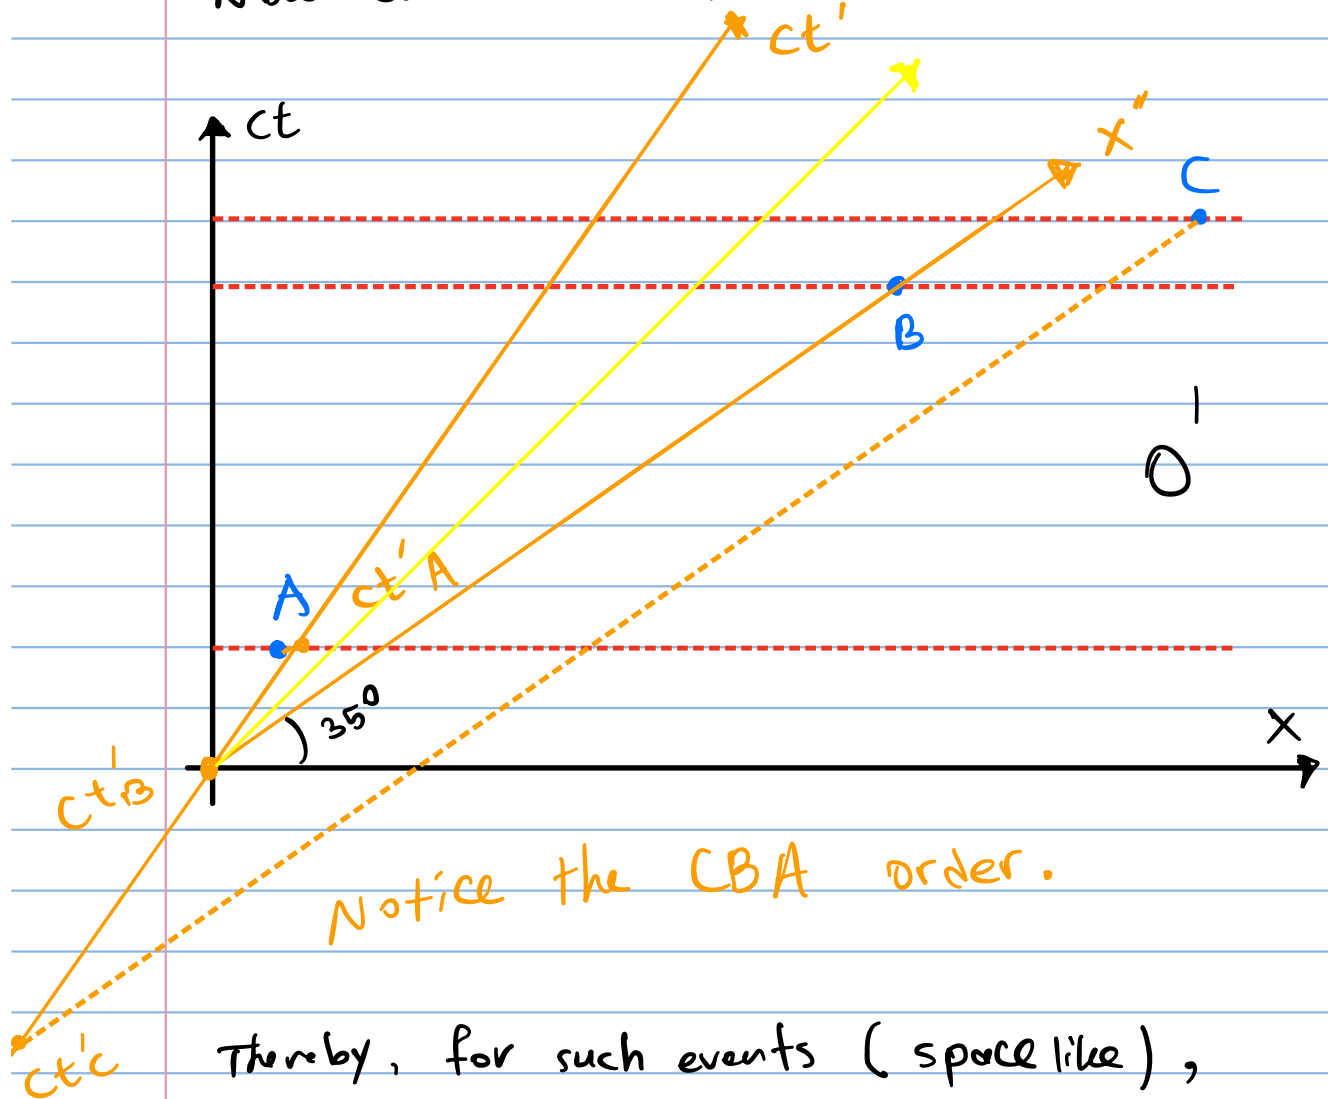 ct'
ct
x"
C
B
O'
A
ct'A
35°
x
ct'B
Notice the CBA order.
ct'C
Thereby, for such events (spacelike),